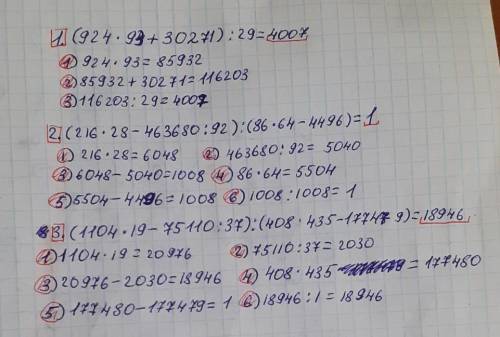 1. (924·93+30271):29=4007
1) 924·93=85932
2) 85932+30271=116203
3) 116203:29=4007
2. (216·28-463680:92):(86·64-4496)=1
1) 216·28=6048 2) 463680:92= 5040
3) 6048-5040=1008 4) 86·64=5504
5) 5504-4496=1008 6) 1008:1008=1
3. (1104·19-75110:37):(408·435-177479)=18946
1) 1104·19=20976 2) 75110:37=2030
3) 20976-2030=18946 4) 408·435 =177480
5) 177480-177479=1 6) 18946:1=18946